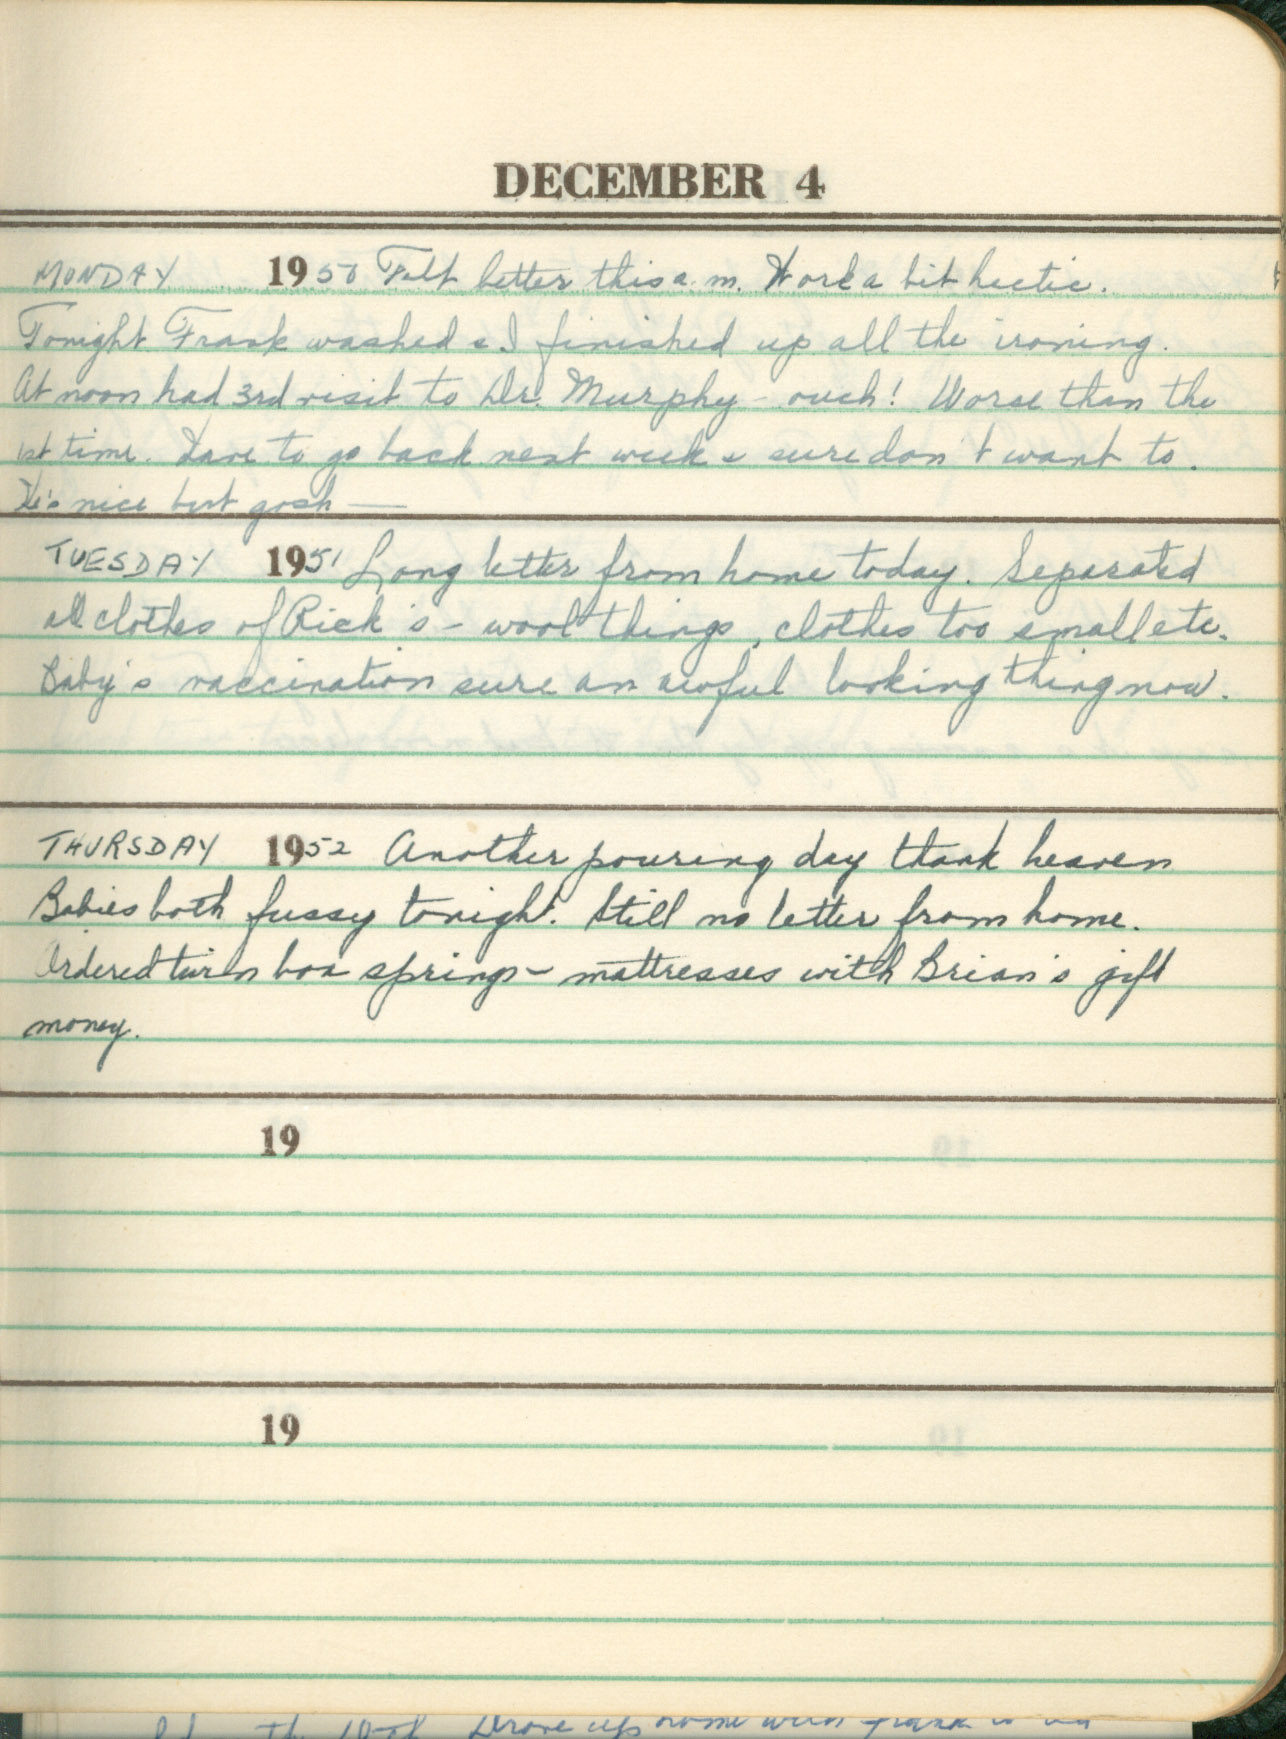 DECEMBER 4
MONDAY 1950 Felt better this a.m. Work a bit hectic.
Tonight Frank washed & I finished up all the ironing.
At noon had 3rd visit to Dr. Murphy - ouch! Worse than the
1st time. Have to go back next week & sure don't want to.
He's nice but gosh —
TUESDAY 1951 Long letter from home today. Separated
all clothes of Rick's - wool things, clothes too small etc.
Baby's vaccination sure an awful looking thing now.
THURSDAY 1952 Another pouring day thank heaven
Babies both fussy tonight. Still no letter from home.
Ordered twin box springs - mattresses with Brian's gift
money.
19
19
Drove up home with Frank